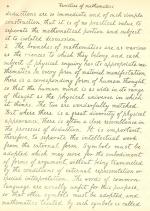 4 Varieties of mathematics
deductions are so immediate and of such simple
construction that it is of no practical value to
separate the mathematical portion and subject
it to isolated discussion.
3. The branches of mathematics are as various
as the sciences to which they belong and each
subject of physical inquiry has its appropriate
mathematics. In every form of material manifestation
there is a corresponding form of human thought
so that the human mind is as wide in its range
of thought as the physical universe in which
it thinks. The two are wonderfully matched.
But where there is a great diversity of physical
appearance there is often a close resemblance in
the processes of deduction. It is important
therefore to separate the intellectual work
from the external form. Symbols must be
adopted which may serve for the embodiment
of forms of argument without being trammeled
by the conditions of external representation or
special interpretation. The words of common
language are usually unfit for this purpose,
so that other symbols must be adopted, and
mathematics treated by such symbols is called